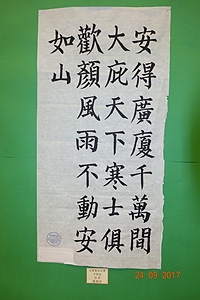 安得廣廈千萬間
大庇天下寒士俱
歡顏風雨不動安
如山
24 09 2017